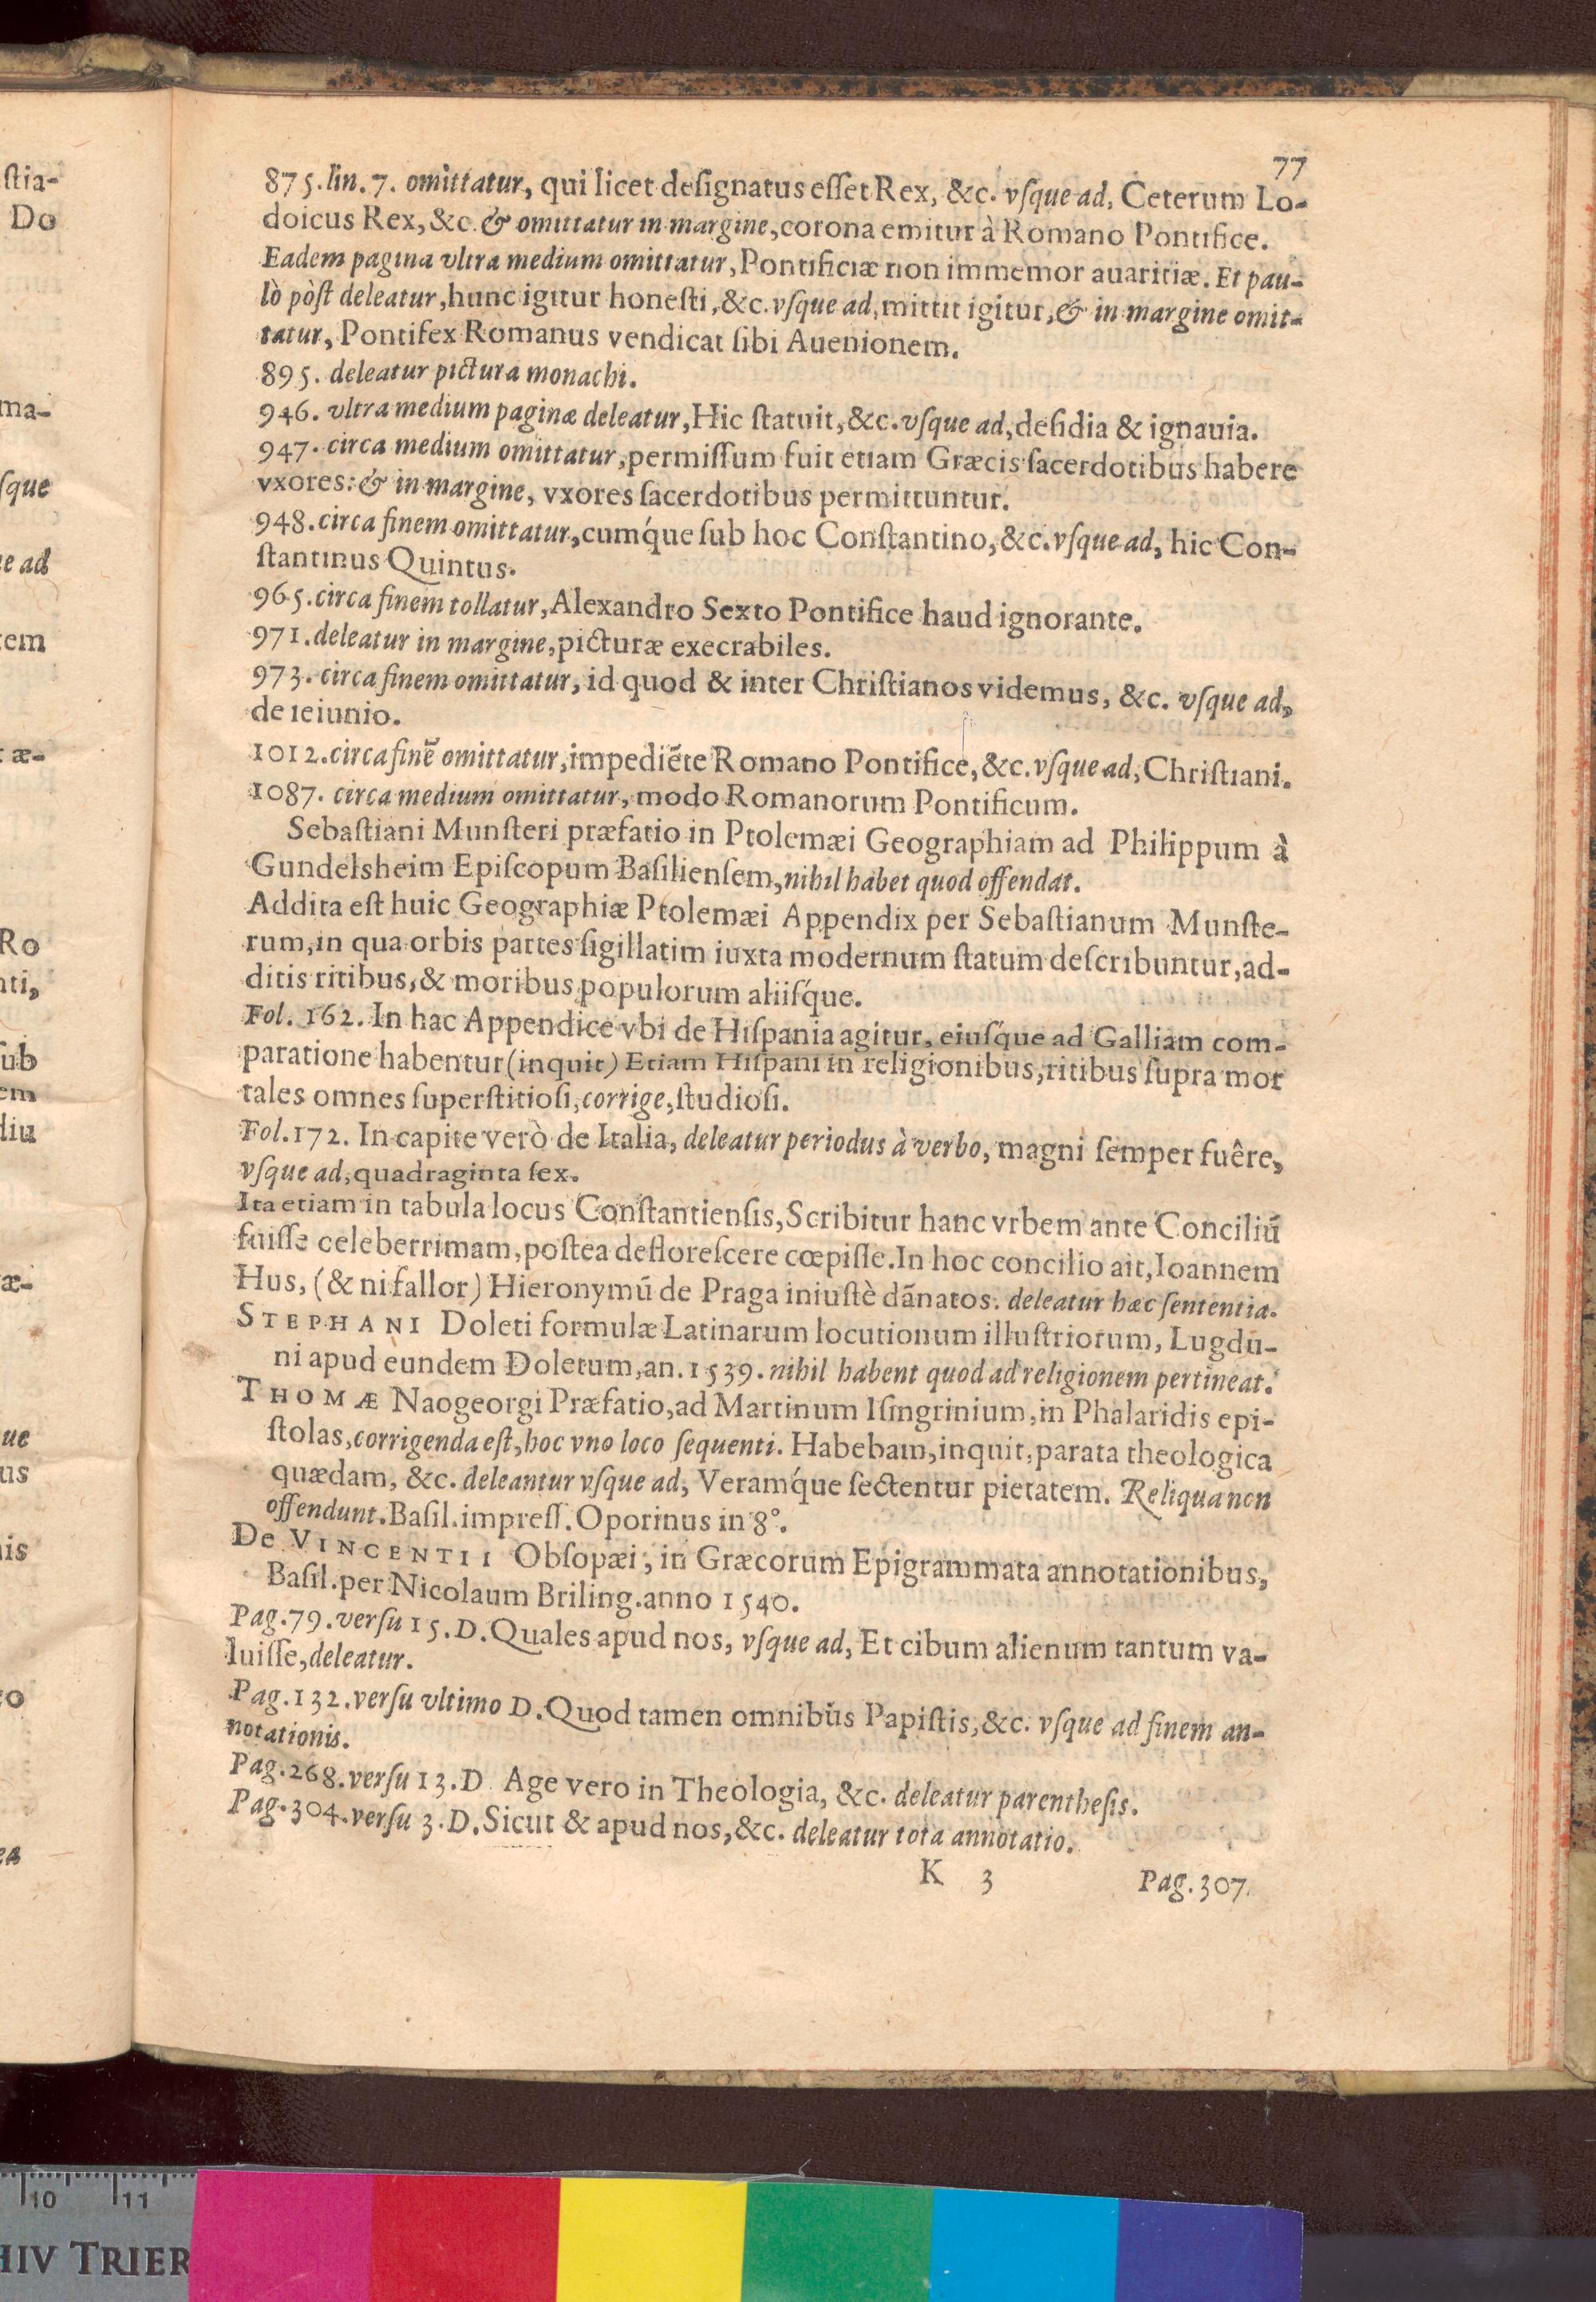 77
875. lin. 7. omittatur, qui licet deſignatus eſſet Rex, &c. vſque ad, Ceterum Lo-
doicus Rex, &c. & omittatur in margine, corona emitur à Romano Pontifice.
Eadem pagina vltra medium omittatur, Pontificiæ non immemor auaritiæ. Et pau-
lò pòſt deleatur, hunc igitur honeſti, &c. vſque ad, mittit igitur, & in margine omit-
tatur, Pontifex Romanus vendicat ſibi Auenionem.
895. deleatur pictura monachi.
946. vltra medium paginæ deleatur, Hic ſtatuit, &c. vſque ad, deſidia & ignauia.
947. circa medium omittatur, permiſſum fuit etiam Græcis ſacerdotibus habere
vxores: & in margine, vxores ſacerdotibus permittuntur.
948. circa finem omittatur, cumq́ue ſub hoc Conſtantino, &c. vſque ad, hic Con-
ſtantinus Quintus.
965. circa finem tollatur, Alexandro Sexto Pontifice haud ignorante.
971. deleatur in margine, picturæ execrabiles.
973. circa finem omittatur, id quod & inter Chriſtianos videmus, &c. vſque ad,
de ieiunio.
1012. circa finē omittatur, impediēte Romano Pontifice, &c. vſque ad, Chriſtiani.
1087. circa medium omittatur, modo Romanorum Pontificum.
Sebaſtiani Munſteri præfatio in Ptolemæi Geographiam ad Philippum à
Gundelsheim Epiſcopum Baſilienſem, nihil habet quod offendat.
Addita eſt huic Geographiæ Ptolemæi Appendix per Sebaſtianum Munſte-
rum, in qua orbis partes ſigillatim iuxta modernum ſtatum deſcribuntur, ad-
ditis ritibus, & moribus populorum aliiſq́ue.
Fol. 162. In hac Appendice vbi de Hiſpania agitur, eiuſq́ue ad Galliam com-
paratione habentur (inquit) Etiam Hiſpani in religionibus, ritibus ſupra mor
tales omnes ſuperſtitioſi, corrige, ſtudioſi.
Fol. 172. In capite verò de Italia, deleatur periodus à verbo, magni ſemper fuêre,
vſque ad, quadraginta ſex.
Ita etiam in tabula locus Conſtantienſis, Scribitur hanc vrbem ante Conciliū
fuiſſe celeberrimam, poſtea defloreſcere cœpiſſe. In hoc concilio ait, Ioannem
Hus, (& ni fallor) Hieronymū de Praga iniuſtè dānatos. deleatur hæc ſententia.
STEPHANI Doleti formulæ Latinarum locutionum illuſtriorum, Lugdu-
ni apud eundem Doletum, an. 1539. nihil habent quod ad religionem pertineat.
THOMÆ Naogeorgi Præfatio, ad Martinum Iſingrinium, in Phalaridis epi-
ſtolas, corrigenda eſt, hoc vno loco ſequenti. Habebam, inquit, parata theologica
quædam, &c. deleantur vſque ad, Veramq́ue ſectentur pietatem. Reliqua non
offendunt. Baſil. impreſſ. Oporinus in 8°.
De VINCENTII Obſopæi, in Græcorum Epigrammata annotationibus,
Baſil. per Nicolaum Briling. anno 1540.
Pag. 79. verſu 15. D. Quales apud nos, vſque ad, Et cibum alienum tantum va-
luiſſe, deleatur.
Pag. 132. verſu vltimo D. Quod tamen omnibus Papiſtis, &c. vſque ad finem an-
notationis.
Pag. 268. verſu 13. D. Age vero in Theologia, &c. deleatur parentheſis.
Pag. 304. verſu 3. D. Sicut & apud nos, &c. deleatur tota annotatio.
K 3 Pag. 307.
ſtia-
Do
ma-
ſque
e ad
tem
æ-
Ro
nti,
ſub
em
diu
æ-
ue
us
nis
eo
ea
10 11
HIV TRIER